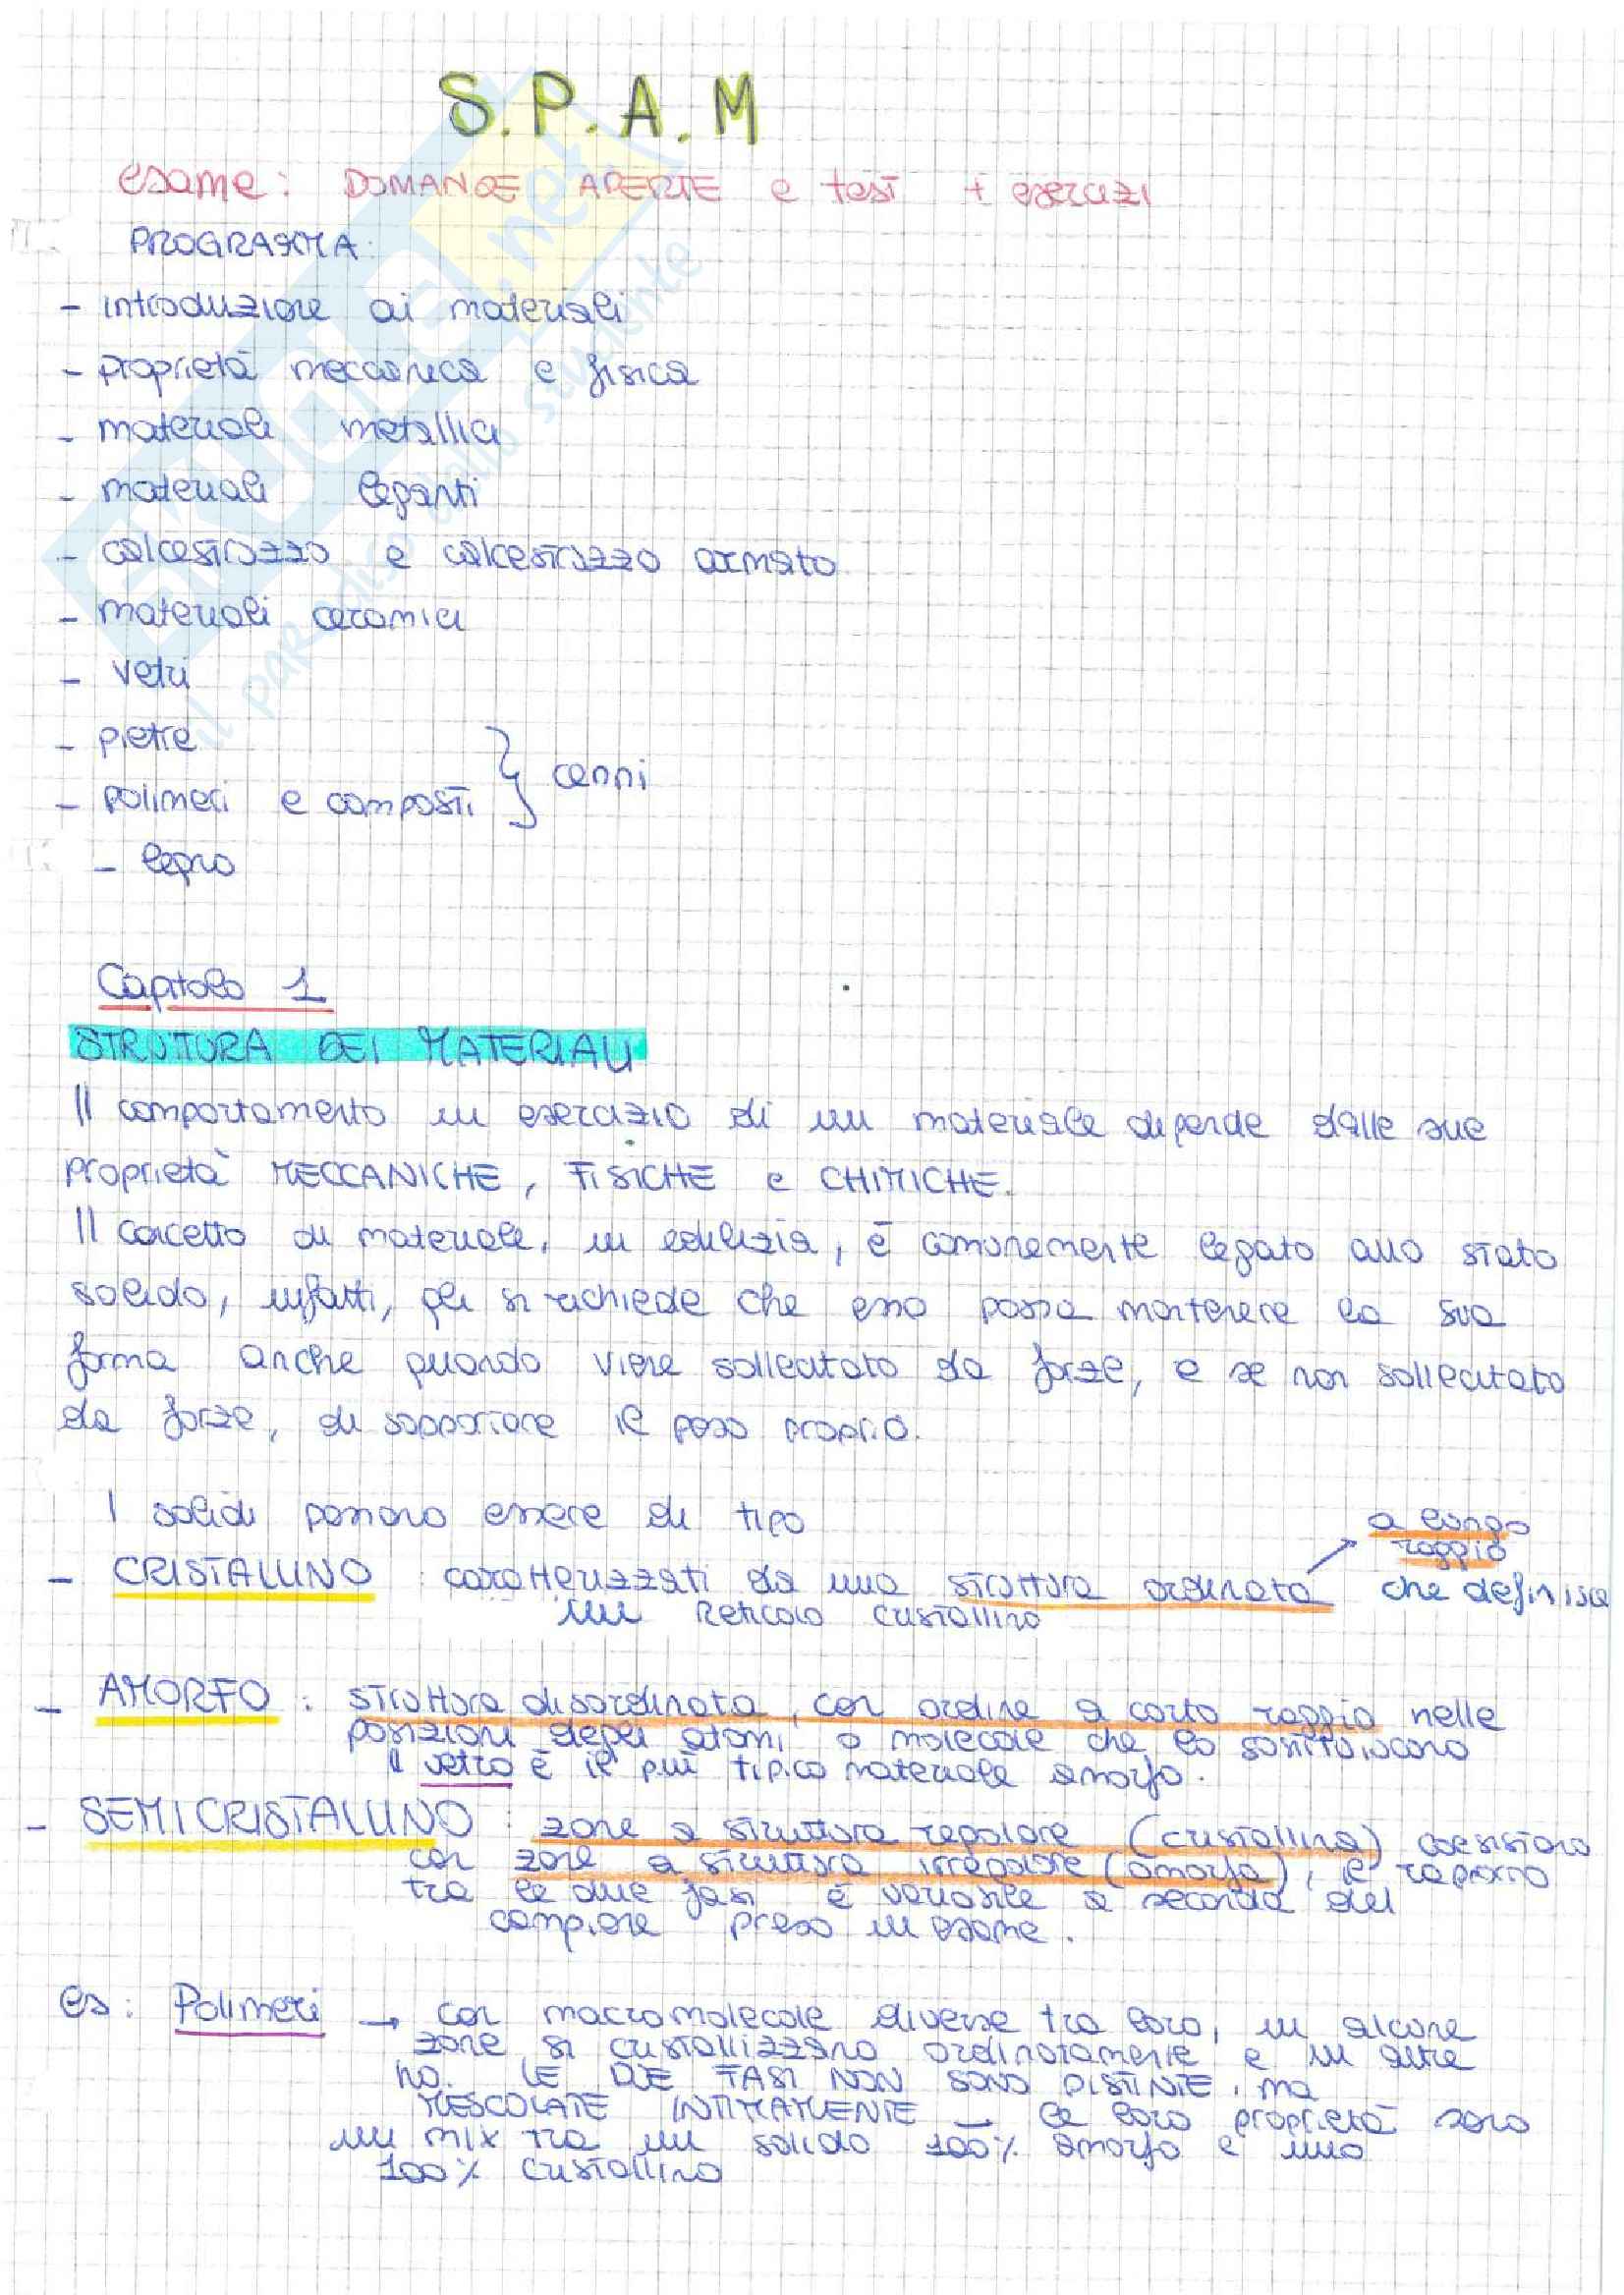 S.P.A.M
esame: DOMANDE APERTE e test + esercizi
PROGRAMMA:
- introduzione ai materiali
- proprietà meccanica e fisica
- materiali metallici
- materiali leganti
- calcestruzzo e calcestruzzo armato
- materiali ceramici
- vetri
- pietre
- polimeri e composti } cenni
- legno
Capitolo 1
STRUTTURA DEI MATERIALI
Il comportamento in esercizio di un materiale dipende dalle sue
proprietà MECCANICHE, FISICHE e CHIMICHE.
Il concetto di materiale, in edilizia, è comunemente legato allo stato
solido, infatti, gli si richiede che esso possa mantenere la sua
forma anche quando viene sollecitato da forze, e se non sollecitato
da forze, di sopportare il peso proprio.
I solidi possono essere di tipo
- CRISTALLINO : caratterizzati da una struttura ordinata → a lungo raggio che definisce
un reticolo cristallino
- AMORFO : struttura disordinata, con ordine a corto raggio nelle
posizioni degli atomi o molecole che lo sostituiscono
Il vetro è il più tipico materiale amorfo.
- SEMICRISTALLINO : zone a struttura regolare (cristallina) coesistono
con zone a struttura irregolare (amorfa), il rapporto
tra le due fasi è variabile a seconda del
campione preso in esame.
es: Polimeri → con macromolecole diverse tra loro, in alcune
zone si cristallizzano ordinatamente e in altre
no. LE DUE FASI NON SONO DISTINTE, ma
MESCOLATE INTIMAMENTE → le loro proprietà sono
un mix tra un solido 100% amorfo e uno
100% cristallino